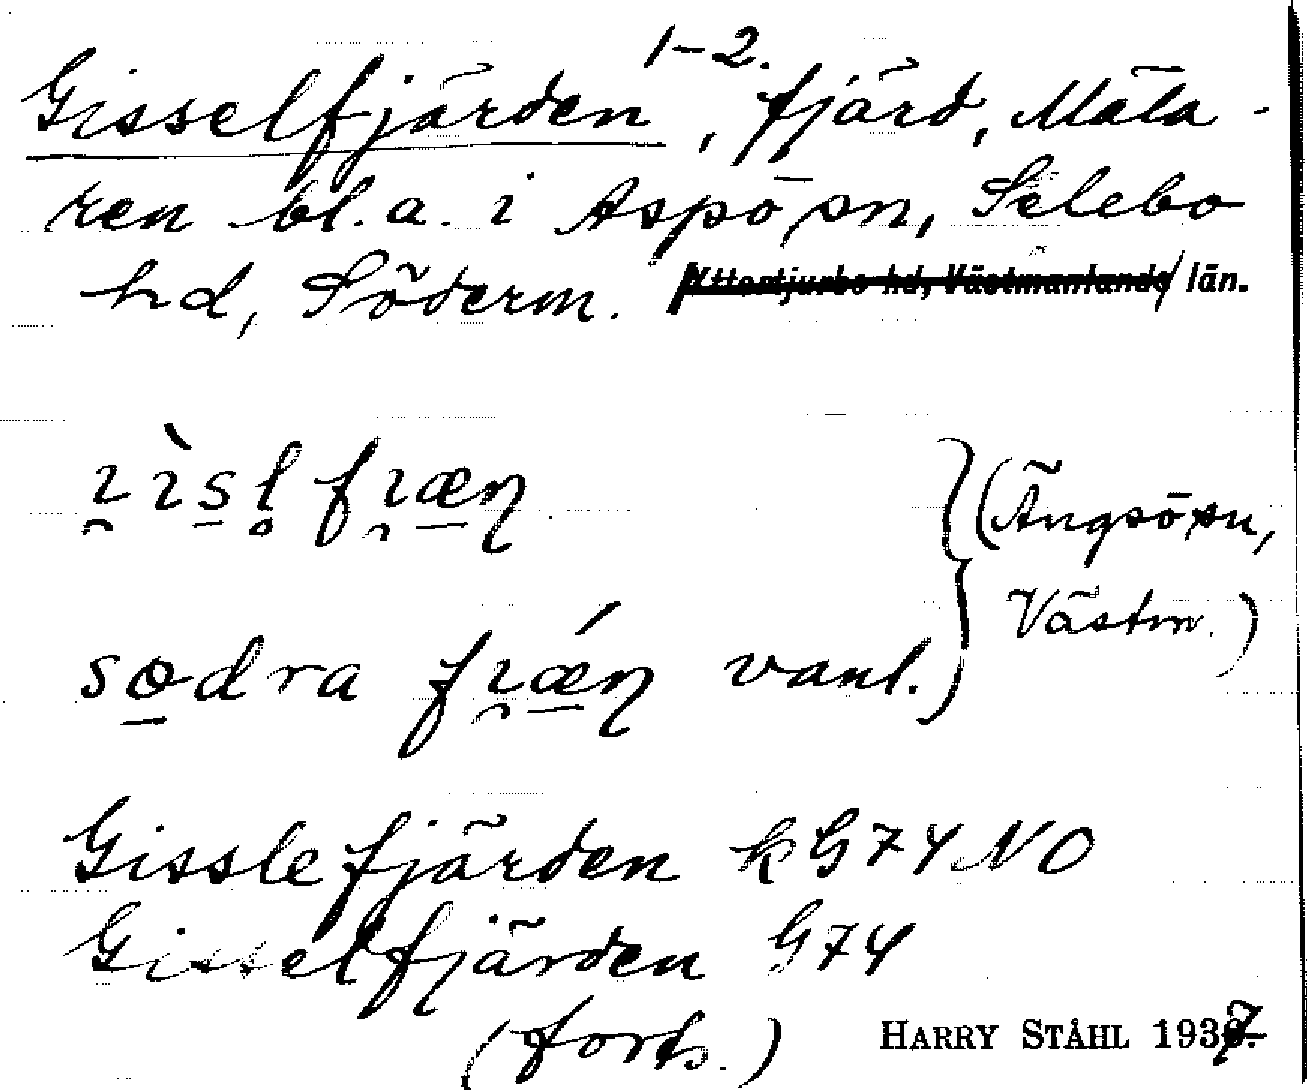 Gisselfjärden 1-2., fjärd, Mäla-
ren bl.a. i Aspö sn, Selebo
hd, Söderm. Yttertjurbo hd, Västmanlands län.
ı̯ìsl̥ fı̯æn
(Ängsö sn,
Västm.)
sødra fı̯ǽn vanl.
Gisslefjärden k G74 NO
Gisselfjärden G74
(forts.)
HARRY STÅHL 1937.